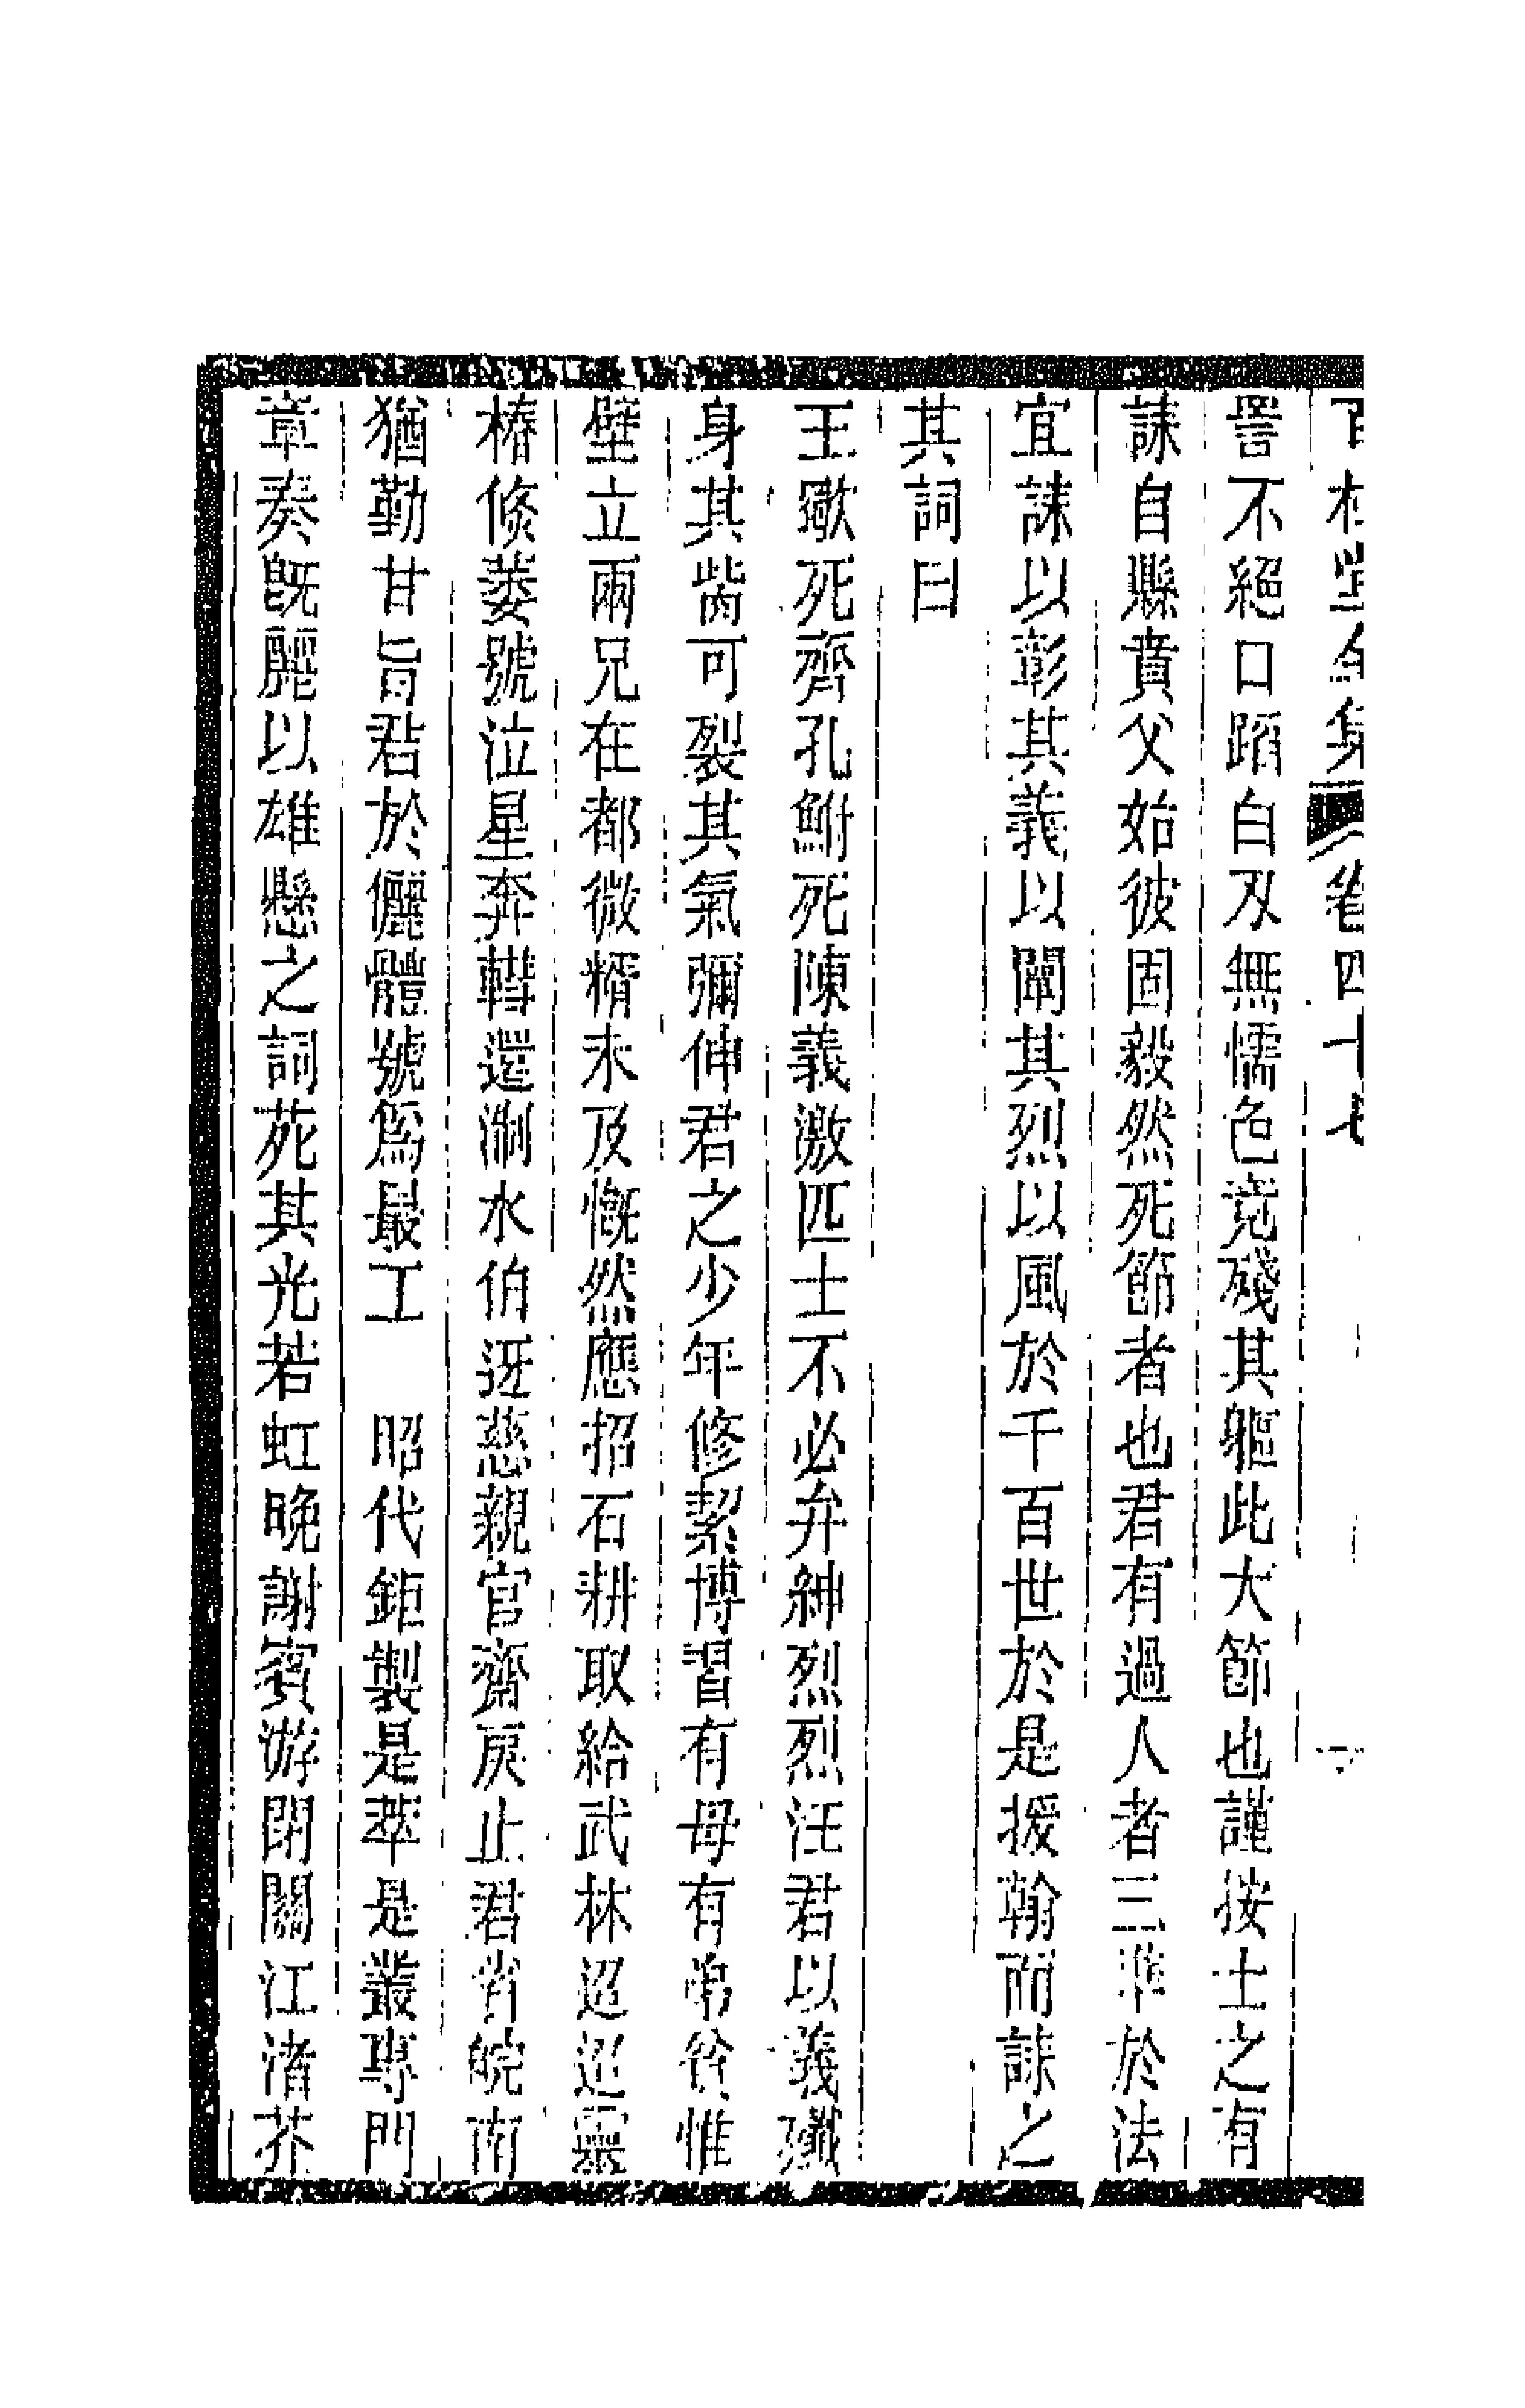 卷四十七
詈不絕口蹈白刃無懦色竟殘其軀此大節也謹按士之有
誄自縣賁父始彼固毅然死節者也君有過人者三準於法
宜誄以彰其義以闡其烈以風於千百世於是援翰而誄之
其詞曰
王歜死齊孔鮒死陳義激匹士不必弁紳烈烈汪君以義殲
身其訾可裂其氣彌伸君之少年修絜博習有母有弟貧惟
壁立兩兄在都微糈未及慨然應招石耕取給武林迢迢靈
椿倏萎號泣星奔轊還淛水伯迓慈親官齋戾止君省皖南
猶勤甘旨君於儷體號爲最工 昭代鉅製是萃是叢專門
章奏旣麗以雄懸之詞苑其光若虹晚謝賓游閉關江渚芥